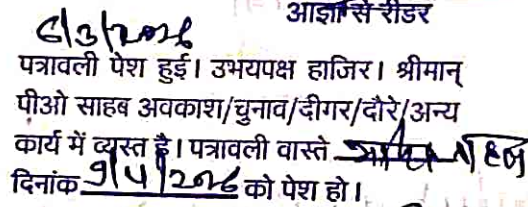 आज्ञा से रीडर
6/3/2026
पत्रावली पेश हुई। उभयपक्ष हाजिर। श्रीमान्
पीओ साहब अवकाश/चुनाव/दीगर/दौरे/अन्य
कार्य में व्यस्त है। पत्रावली वास्ते
दिनांक 9/4/2026 को पेश हो।